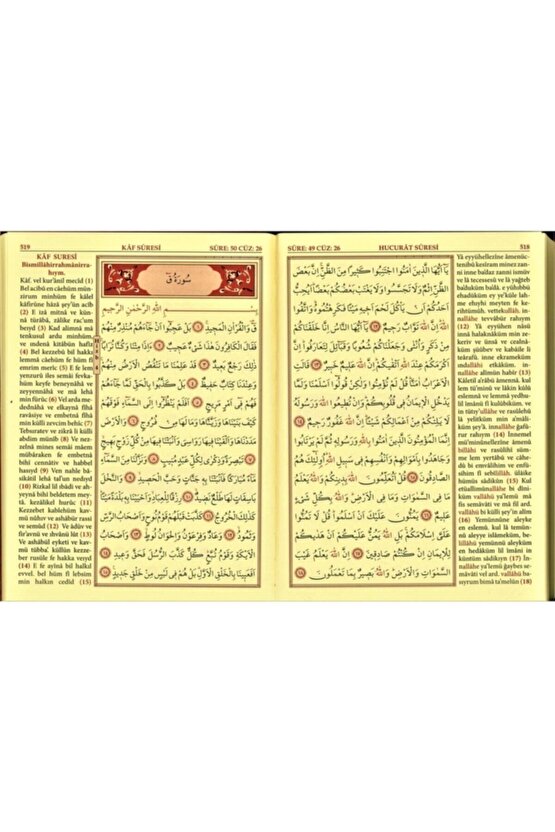 SÛRE: 49 CÜZ: 26 HUCURÂT SÛRESİ 518
يَا أَيُّهَا الَّذِينَ آمَنُوا اجْتَنِبُوا كَثِيرًا مِنَ الظَّنِّ إِنَّ بَعْضَ
الظَّنِّ إِثْمٌ وَلَا تَجَسَّسُوا وَلَا يَغْتَبْ بَعْضُكُمْ بَعْضًا أَيُحِبُّ
أَحَدُكُمْ أَنْ يَأْكُلَ لَحْمَ أَخِيهِ مَيْتًا فَكَرِهْتُمُوهُ وَاتَّقُوا
اللّٰهَ إِنَّ اللّٰهَ تَوَّابٌ رَحِيمٌ ﴿١٢﴾ يَا أَيُّهَا النَّاسُ إِنَّا خَلَقْنَاكُمْ
مِنْ ذَكَرٍ وَأُنْثَى وَجَعَلْنَاكُمْ شُعُوبًا وَقَبَائِلَ لِتَعَارَفُوا إِنَّ
أَكْرَمَكُمْ عِنْدَ اللّٰهِ أَتْقٰيكُمْ إِنَّ اللّٰهَ عَلِيمٌ خَبِيرٌ ﴿١٣﴾ قَالَتِ
الْأَعْرَابُ آمَنَّا قُلْ لَمْ تُؤْمِنُوا وَلٰكِنْ قُولُوا أَسْلَمْنَا وَلَمَّا
يَدْخُلِ الْإِيمَانُ فِي قُلُوبِكُمْ وَإِنْ تُطِيعُوا اللّٰهَ وَرَسُولَهُ
لَا يَلِتْكُمْ مِنْ أَعْمَالِكُمْ شَيْئًا إِنَّ اللّٰهَ غَفُورٌ رَحِيمٌ ﴿١٤﴾
إِنَّمَا الْمُؤْمِنُونَ الَّذِينَ آمَنُوا بِاللّٰهِ وَرَسُولِهِ ثُمَّ لَمْ يَرْتَابُوا
وَجَاهَدُوا بِأَمْوَالِهِمْ وَأَنْفُسِهِمْ فِي سَبِيلِ اللّٰهِ أُولٰئِكَ هُمُ
الصَّادِقُونَ ﴿١٥﴾ قُلْ أَتُعَلِّمُونَ اللّٰهَ بِدِينِكُمْ وَاللّٰهُ يَعْلَمُ مَا
فِي السَّمٰوَاتِ وَمَا فِي الْأَرْضِ وَاللّٰهُ بِكُلِّ شَيْءٍ
عَلِيمٌ ﴿١٦﴾ يَمُنُّونَ عَلَيْكَ أَنْ أَسْلَمُوا قُلْ لَا تَمُنُّوا
عَلَيَّ إِسْلَامَكُمْ بَلِ اللّٰهُ يَمُنُّ عَلَيْكُمْ أَنْ هَدٰيكُمْ
لِلْإِيمَانِ إِنْ كُنْتُمْ صَادِقِينَ ﴿١٧﴾ إِنَّ اللّٰهَ يَعْلَمُ غَيْبَ
السَّمٰوَاتِ وَالْأَرْضِ وَاللّٰهُ بَصِيرٌ بِمَا تَعْمَلُونَ ﴿١٨﴾
Yâ eyyühellezîne âmenüc-
tenibû kesîram minez zan-
ni inne ba'daz zanni ismüv
ve lâ tecessesû ve lâ yağteb
ba'duküm ba'dâ. e yühıbbü
ehadüküm ey ye'küle lah-
me ehıyhi meyten fe ke-
rihtümûh. vettekullâh. in-
nallâhe tevvâbür rahıym
(12) Yâ eyyühen nâsü
innâ halaknâküm min ze-
keriv ve ünsâ ve cealnâ-
küm şüûbev ve kabâile li
teârafû. inne ekrameküm
ındallâhi etkâküm. in-
nallâhe alîmün habîr (13)
Kâletil a'râbü âmennâ. kul
lem tü'minû ve lâkin kûlû
eslemnâ ve lemmâ yedhu-
lil îmânü fî kulûbiküm. ve
in tütıy'ullâhe ve rasûlehû
lâ yelitküm min a'mâli-
küm şey'â. innallâhe ğafû-
rur rahıym (14) İnnemel
mü'minûnellezîne âmenû
billâhi ve rasûlihî süm-
me lem yertâbû ve câhe-
dû bi emvâlihim ve enfü-
sihim fî sebîlillâh. ülâike
hümüs sâdikûn (15) Kul
etüallimûnallâhe bi dîni-
küm vallâhü ya'lemü mâ
fis semâvâti ve mâ fil ard.
vallâhü bi külli şey'in alîm
(16) Yemünnûne aleyke
en eslemû. kul lâ temün-
nû aleyye islâmeküm, be-
lillâhü yemünnü aleyküm
en hedâküm lil îmâni in
küntüm sâdikıyn (17) İn-
nallâhe ya'lemü ğaybes se-
mâvâti vel ard. vallâhü ba-
sıyrum bimâ ta'melûn (18)
519 KÂF SÛRESİ SÛRE: 50 CÜZ: 26
سُورَةُ قٓ
بِسْمِ اللّٰهِ الرَّحْمٰنِ الرَّحِيمِ
قٓ وَالْقُرْآنِ الْمَجِيدِ ﴿١﴾ بَلْ عَجِبُوا أَنْ جَاءَهُمْ مُنْذِرٌ مِنْهُمْ
فَقَالَ الْكَافِرُونَ هٰذَا شَيْءٌ عَجِيبٌ ﴿٢﴾ ءَإِذَا مِتْنَا وَكُنَّا تُرَابًا
ذٰلِكَ رَجْعٌ بَعِيدٌ ﴿٣﴾ قَدْ عَلِمْنَا مَا تَنْقُصُ الْأَرْضُ مِنْهُمْ
وَعِنْدَنَا كِتَابٌ حَفِيظٌ ﴿٤﴾ بَلْ كَذَّبُوا بِالْحَقِّ لَمَّا جَاءَهُمْ
فَهُمْ فِي أَمْرٍ مَرِيجٍ ﴿٥﴾ أَفَلَمْ يَنْظُرُوا إِلَى السَّمَاءِ فَوْقَهُمْ
كَيْفَ بَنَيْنَاهَا وَزَيَّنَّاهَا وَمَا لَهَا مِنْ فُرُوجٍ ﴿٦﴾ وَالْأَرْضَ
مَدَدْنَاهَا وَأَلْقَيْنَا فِيهَا رَوَاسِيَ وَأَنْبَتْنَا فِيهَا مِنْ كُلِّ زَوْجٍ بَهِيجٍ
﴿٧﴾ تَبْصِرَةً وَذِكْرٰى لِكُلِّ عَبْدٍ مُنِيبٍ ﴿٨﴾ وَنَزَّلْنَا مِنَ السَّمَاءِ
مَاءً مُبَارَكًا فَأَنْبَتْنَا بِهِ جَنَّاتٍ وَحَبَّ الْحَصِيدِ ﴿٩﴾ وَالنَّخْلَ
بَاسِقَاتٍ لَهَا طَلْعٌ نَضِيدٌ ﴿١٠﴾ رِزْقًا لِلْعِبَادِ وَأَحْيَيْنَا بِهِ بَلْدَةً مَيْتًا
كَذٰلِكَ الْخُرُوجُ ﴿١١﴾ كَذَّبَتْ قَبْلَهُمْ قَوْمُ نُوحٍ وَأَصْحَابُ الرَّسِّ
وَثَمُودُ ﴿١٢﴾ وَعَادٌ وَفِرْعَوْنُ وَإِخْوَانُ لُوطٍ ﴿١٣﴾ وَأَصْحَابُ
الْأَيْكَةِ وَقَوْمُ تُبَّعٍ كُلٌّ كَذَّبَ الرُّسُلَ فَحَقَّ وَعِيدِ ﴿١٤﴾
أَفَعَيِينَا بِالْخَلْقِ الْأَوَّلِ بَلْ هُمْ فِي لَبْسٍ مِنْ خَلْقٍ جَدِيدٍ ﴿١٥﴾
KÂF SURESİ
Bismillâhirrahmânirra-
hıym.
Kâf. vel kur'ânil mecîd (1)
Bel acibû en câehüm mün-
zirum minhüm fe kâlel
kâfirûne hâzâ şey'ün acîb
(2) E izâ mitnâ ve kün-
nâ türâbâ, zâlike rac'um
beıyd (3) Kad alimnâ mâ
tenkusul ardu minhüm,
ve ındenâ kitâbün hafîyz
(4) Bel kezzebû bil hakkı
lemmâ câehüm fe hüm fî
emrim merîc (5) E fe lem
yenzurû iles semâi fevka-
hüm keyfe beneynâhâ ve
zeyyennâhâ ve mâ lehâ
min fürûc (6) Vel arda me-
dednâhâ ve elkaynâ fîhâ
ravâsiye ve embetnâ fîhâ
min külli zevcim behîc (7)
Tebsıratev ve zikrâ li külli
abdim münîb (8) Ve nez-
zelnâ mines semâi mâem
mübâraken fe embetnâ
bihî cennâtiv ve habbel
hasıyd (9) Ven nahle bâ-
sikâtil lehâ tal'un nedıyd
(10) Rizkal lil ıbâdi ve ah-
yeynâ bihî beldetem mey-
tâ. kezâlikel hurûc (11)
Kezzebet kablehüm kav-
mü nûhıv ve ashâbür rassi
ve semûd (12) Ve âdüv ve
fir'avnü ve ıhvânü lût (13)
Ve ashâbül eyketi ve kav-
mü tübba'. küllün kezze-
ber rusüle fe hakka veıyd
(14) E fe ayînâ bil halkıl
evvel. bel hüm fî lebsim
min halkın cedîd (15)